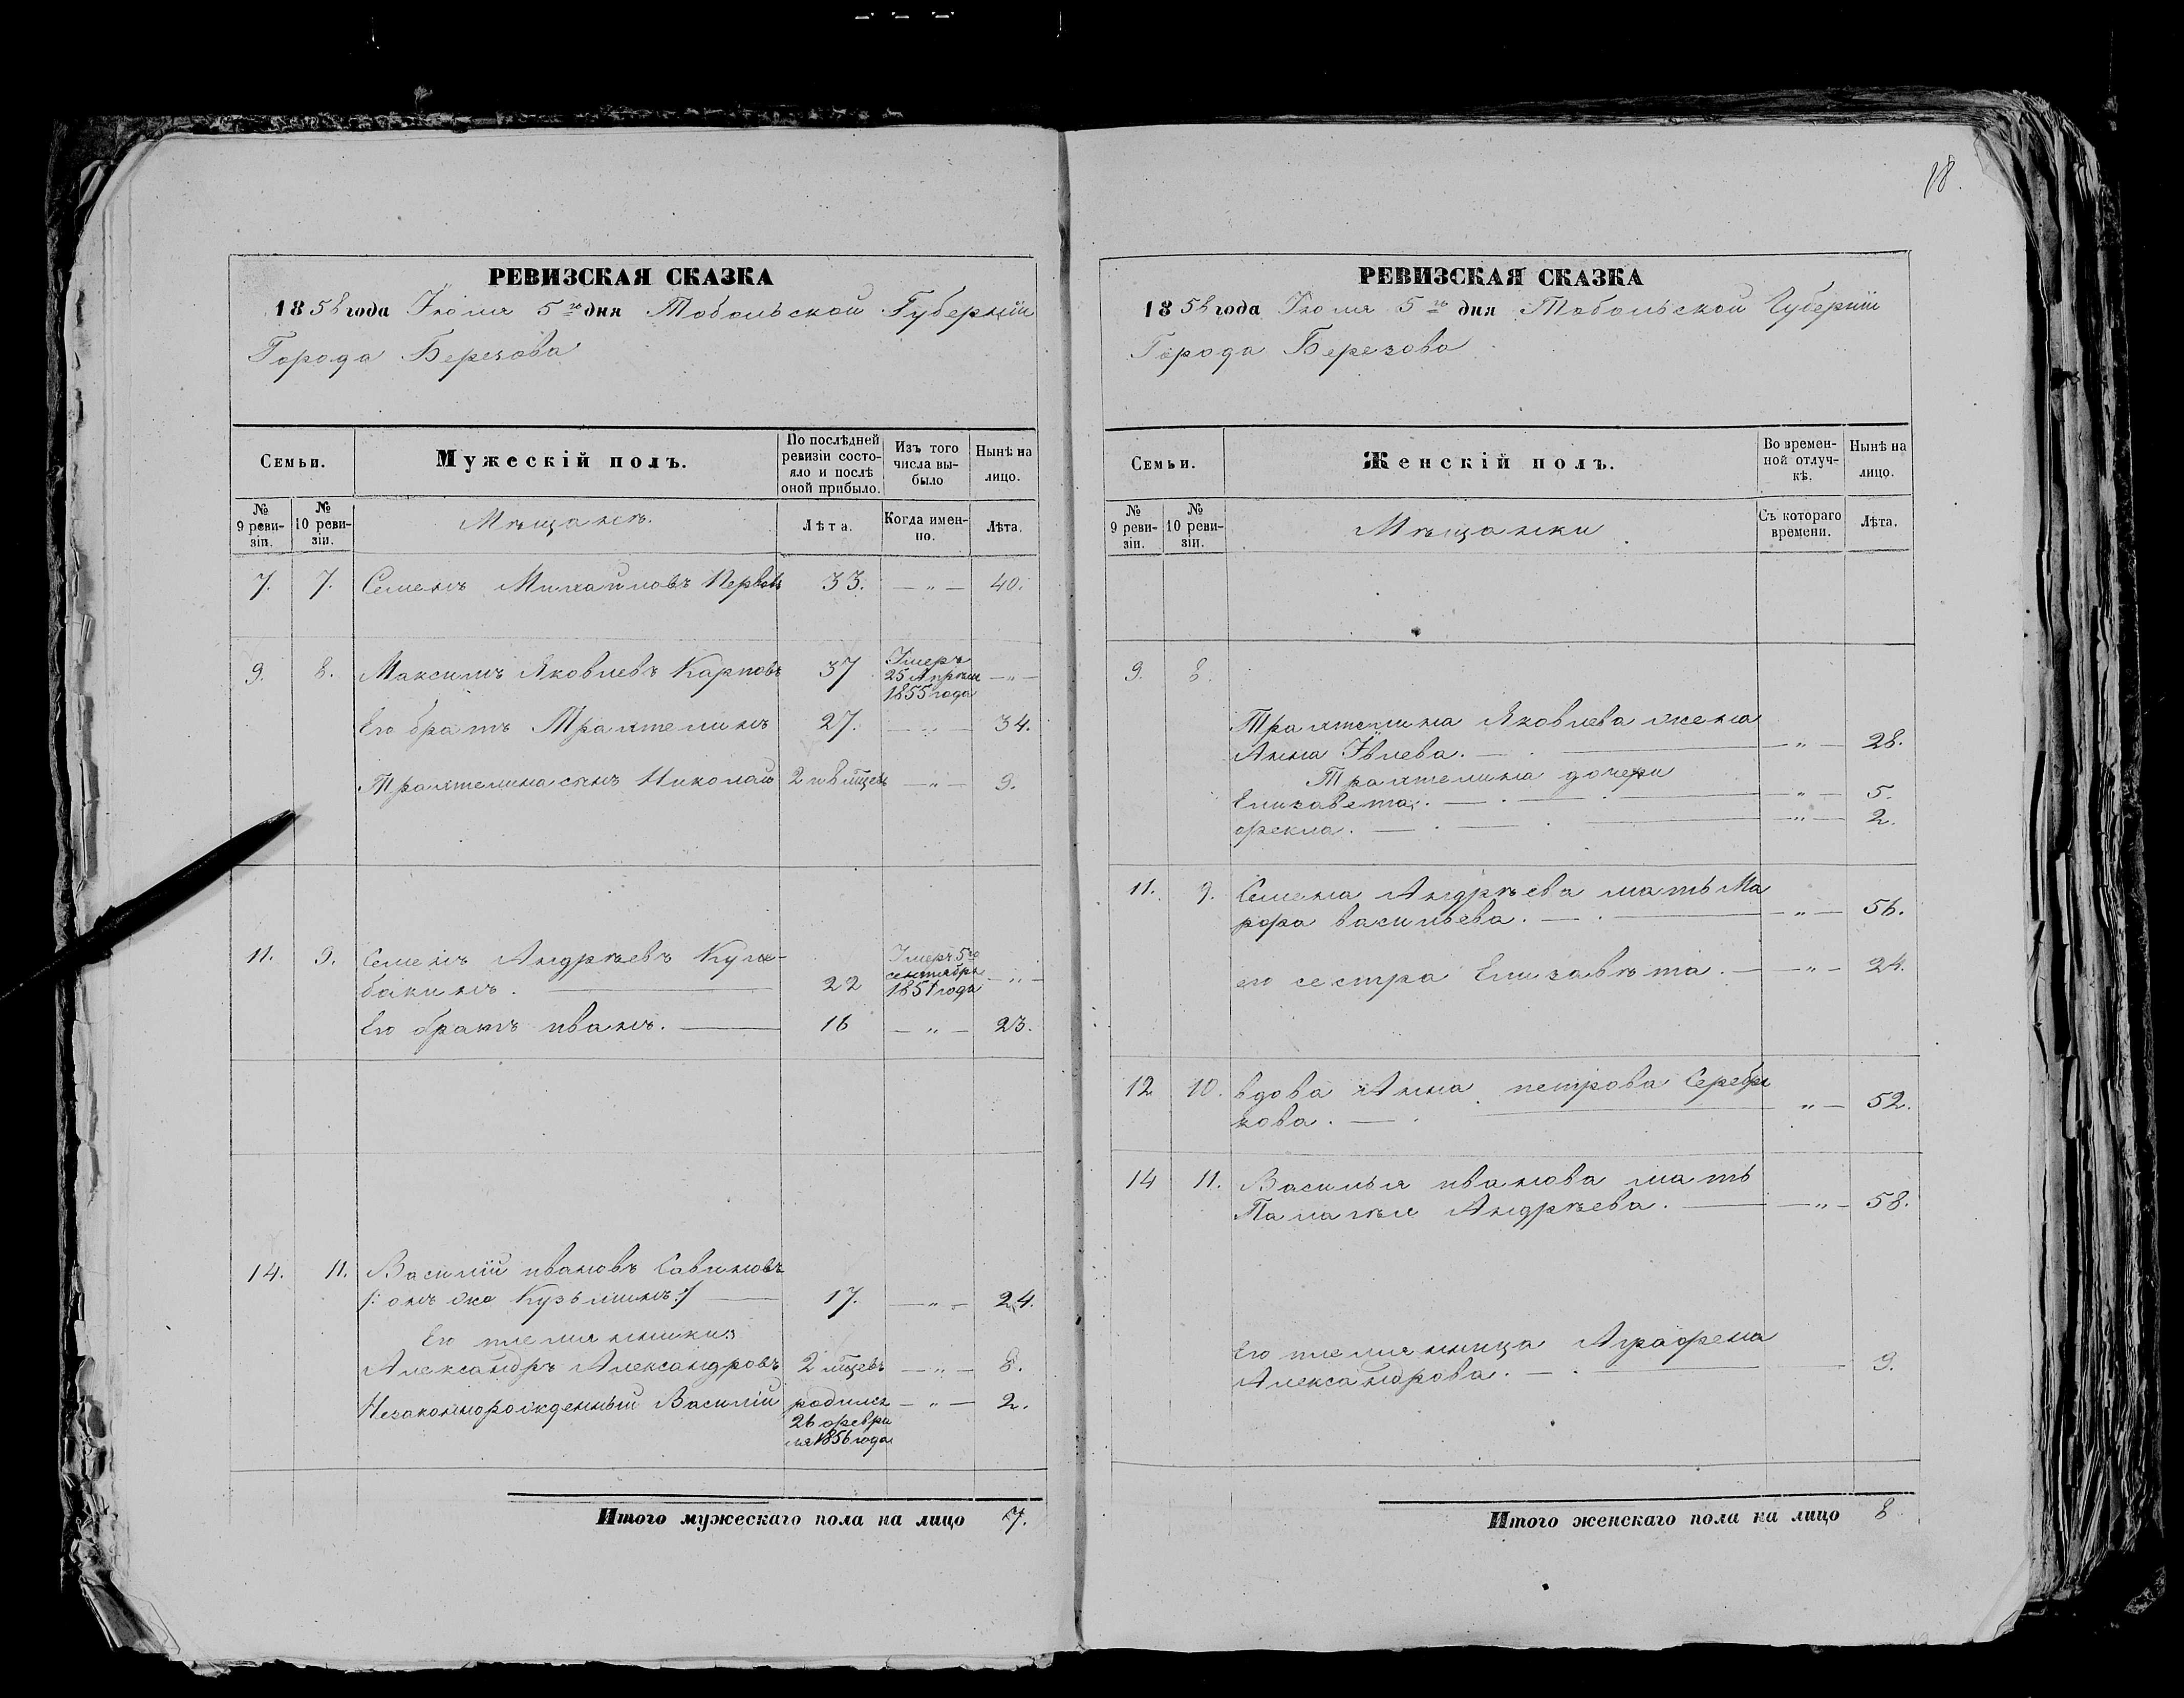 18.
РЕВИЗСКАЯ СКАЗКА
1858 года Іюля 5го дня Тобольской Губерніи
Города Березова
Семьи.
Мужескій полъ.
По послѣдней ревизіи состояло и послѣ оной прибыло.
Изъ того числа выбыло
Нынѣ на лицо.
№ 9 ревизіи.
№ 10 ревизіи.
Мѣщанѣ.
Лѣта.
Когда именно.
Лѣта.
7. 7. Семенъ Михайловъ Первовъ 33. — „ — 40.
9. 8. Максимъ Яковлевъ Карповъ 37 Умеръ 25 Апрѣля 1855 года — „ —
Его братъ Трактелинъ 27. — „ — 34.
Трактелина сынъ Николай 2 п в мѣсецъ — „ — 9.
11. 9. Семенъ Андрѣевъ Куль-
бакинъ. 22 Умеръ 5го сентября 1851 года — „ —
Его братъ иванъ. 16 — „ — 23.
14. 11. Василій ивановъ Савиновъ
/: онъ же Кузьминъ :/ 17. — „ — 24.
Его племянники:
Александръ Александровъ 2 мѣсецъ — „ — 8.
Незаконнорожденный Василій родился 26 февраля 1856 года — „ — 2.
Итого мужескаго пола на лицо 7.
РЕВИЗСКАЯ СКАЗКА
1858 года Іюля 5го дня Тобольской Губерніи
Города Березова
Семьи.
Женскій полъ.
Во временной отлучкѣ.
Нынѣ на лицо.
№ 9 ревизіи.
№ 10 ревизіи.
Мѣщанки
Съ котораго времени.
Лѣта.
9. 8.
Трактелина Яковлева жена
Анна Іѵлева. — „ — 28.
Трактелина дочери
Елизавета. — „ — 5.
фекла. — „ — 2.
11. 9. Семена Андрѣева мать Ма
рфа васильева. — „ — 56.
его сестра Елизавѣта. — „ — 24.
12 10. вдова Анна петрова Серебря
кова. „ — 52.
14 11. Василья иванова мать
Палагѣя Андрѣева. — „ — 58.
Его племянница Аграфена
Александрова. 9.
Итого женскаго пола на лицо 8